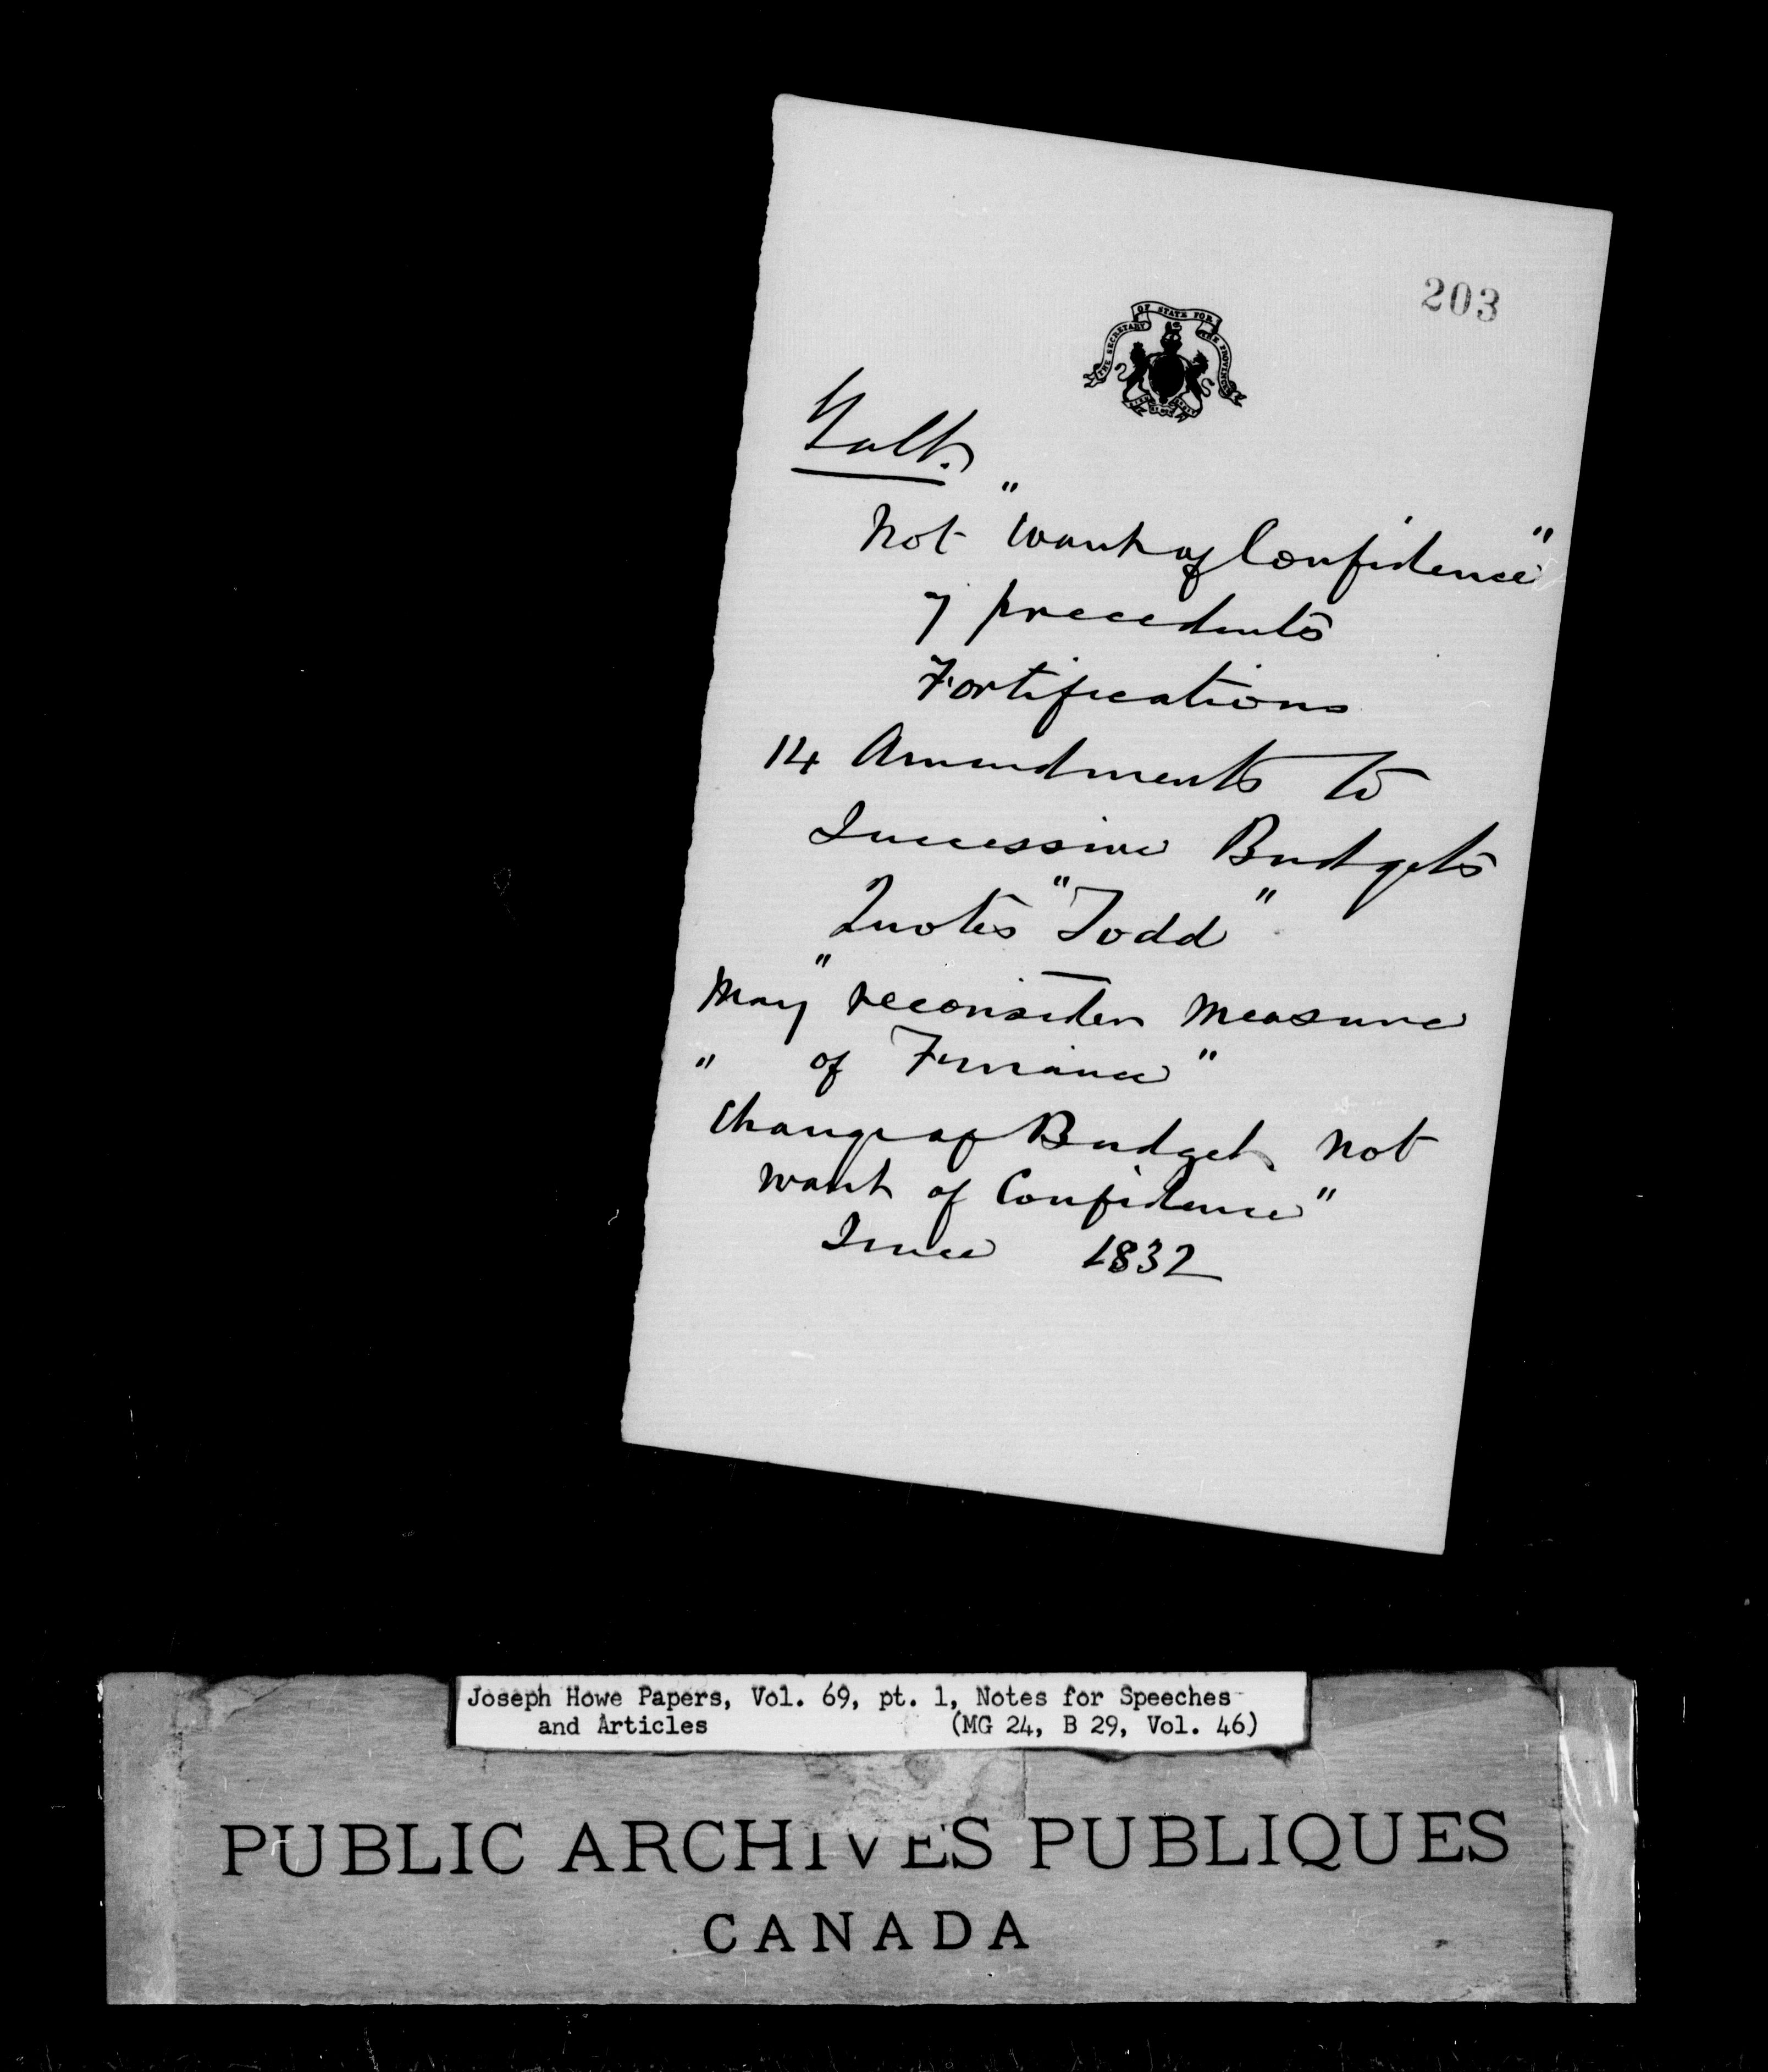 203
THE SECRETARY OF STATE FOR THE PROVINCES
Galt.
Not "Want of Confidence"
7 precedents
Fortifications
14 Amendments to
Successive Budgets
Quotes "Todd"
May "reconsider measure
" of Finance"
Change of Budget not
want of Confidence"
Since 1832
Joseph Howe Papers, Vol. 69, pt. 1, Notes for Speeches
and Articles (MG 24, B 29, Vol. 46)
PUBLIC ARCHIVES PUBLIQUES
CANADA